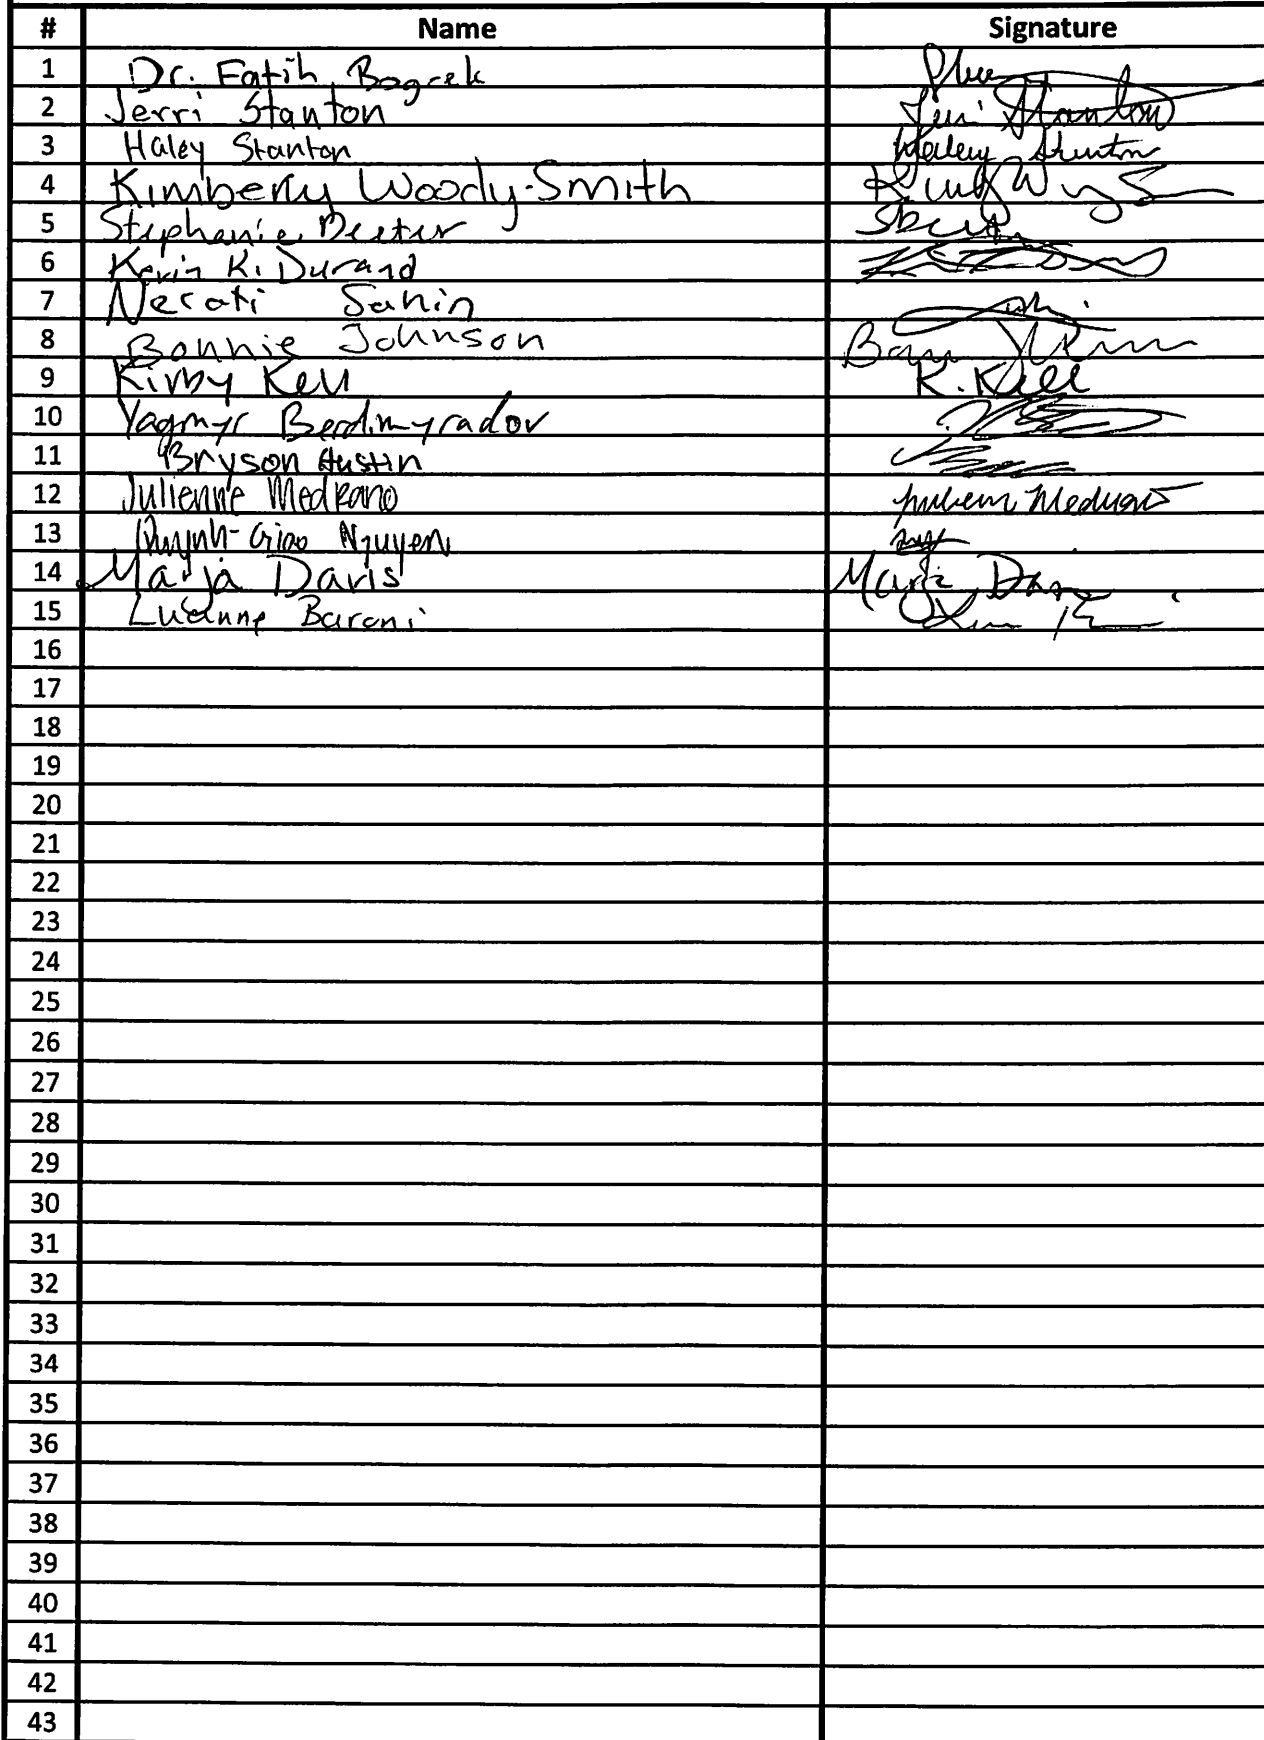 # Name Signature
1 Dr. Fatih Bogrek
2 Jerri Stanton Jerri Stanton
3 Haley Stanton Haley Stanton
4 Kimberly Woody-Smith
5 Stephanie Deeter
6 Kevin K. Durand
7 Necati Sahin
8 Bonnie Johnson
9 Kirby Kell K. Kell
10 Yagmyr Berdimyradov
11 Bryson Austin
12 Julienne Medrano
13 Quynh-Giao Nguyen
14 Marja Davis
15 Luanne Barani
16
17
18
19
20
21
22
23
24
25
26
27
28
29
30
31
32
33
34
35
36
37
38
39
40
41
42
43